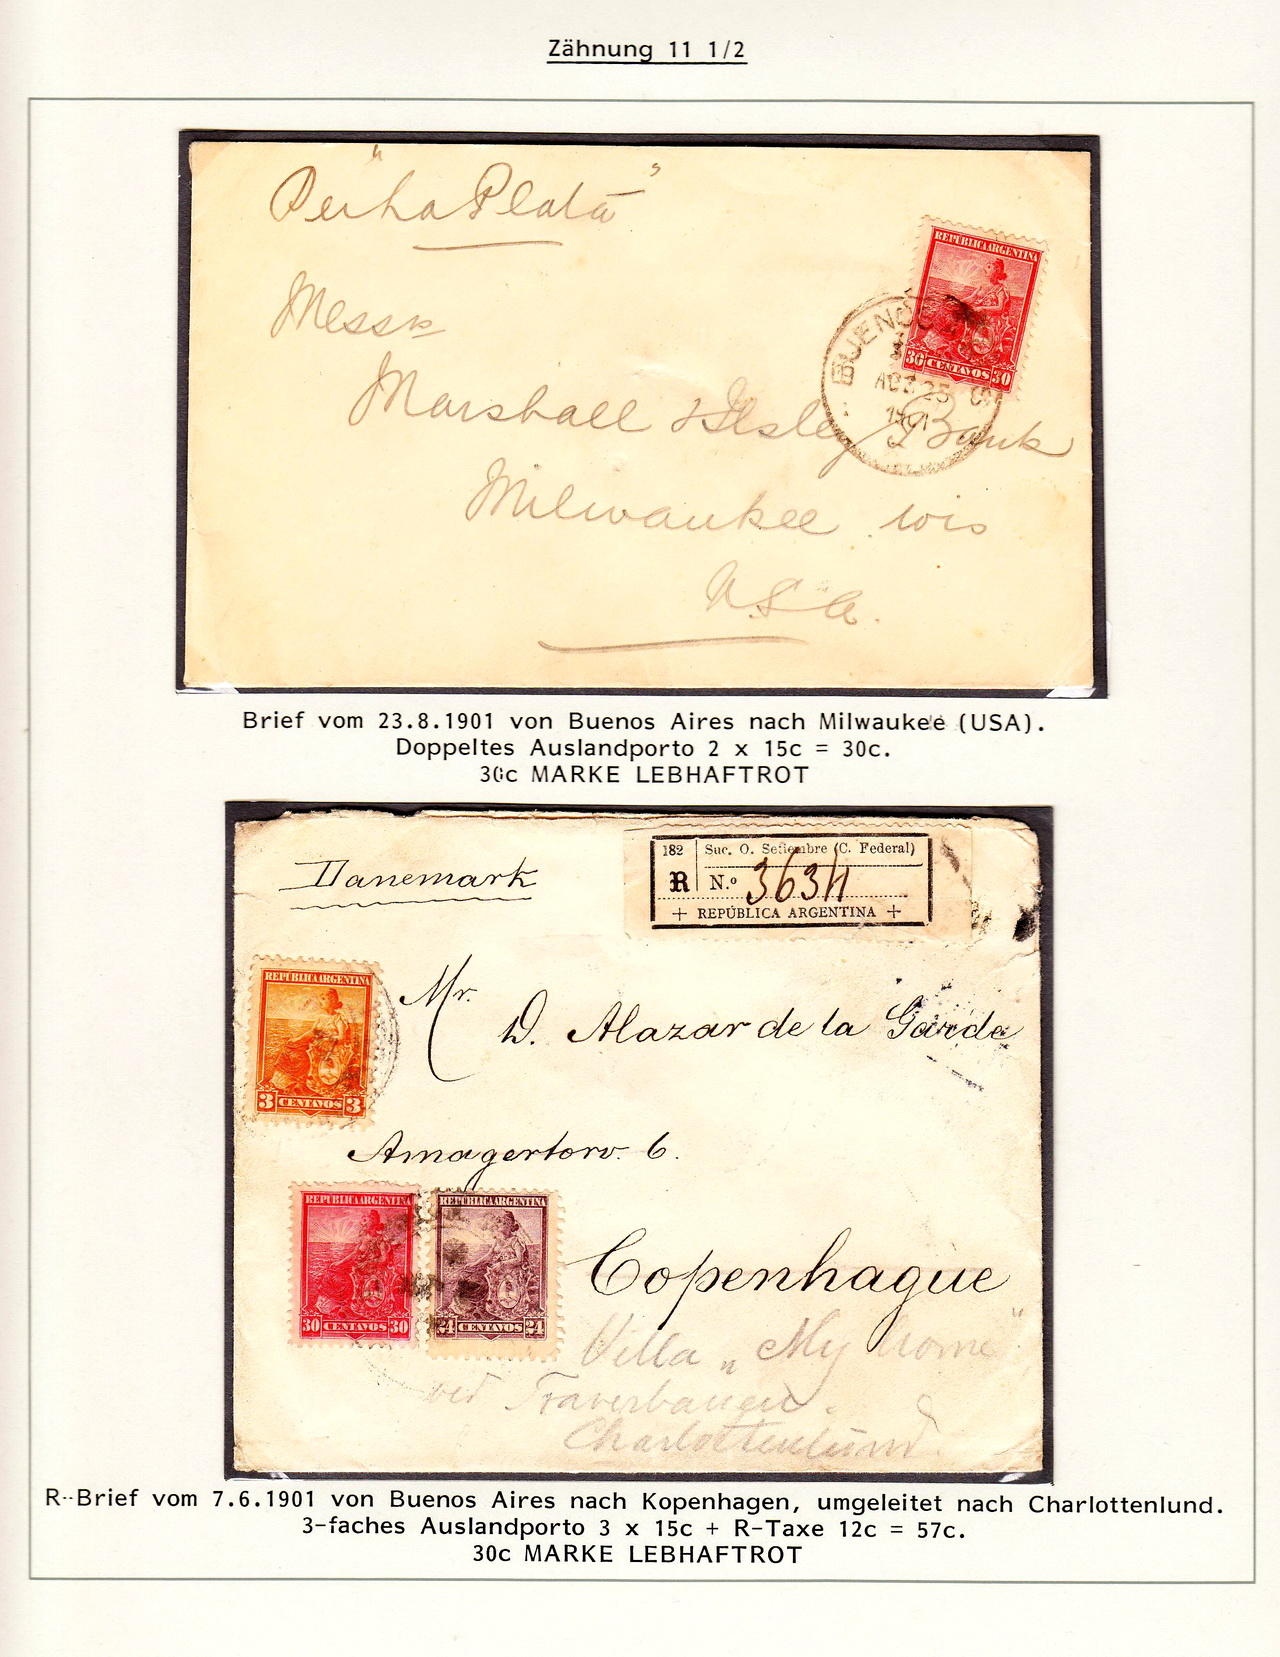 Zähnung 11 1/2
Per "La Plata"
Messrs
Marshall & Ilsley Bank
Milwaukee Wis
U.S.A.
REPUBLICA ARGENTINA
30 CENTAVOS 30
BUENOS AIRES
1901
Brief vom 23.8.1901 von Buenos Aires nach Milwaukee (USA).
Doppeltes Auslandporto 2 x 15c = 30c.
30c MARKE LEBHAFTROT
Danemark
182 Suc. O. Setiembre (C. Federal)
R N.º 3634
+ REPÚBLICA ARGENTINA +
REPUBLICA ARGENTINA
3 CENTAVOS 3
Mr.
D. Alazar de la Garde
Amagertorv. 6.
REPUBLICA ARGENTINA
30 CENTAVOS 30
REPUBLICA ARGENTINA
24 CENTAVOS 24
Copenhague
Villa „My home"
ved
Charlottenlund.
R-Brief vom 7.6.1901 von Buenos Aires nach Kopenhagen, umgeleitet nach Charlottenlund.
3-faches Auslandporto 3 x 15c + R-Taxe 12c = 57c.
30c MARKE LEBHAFTROT